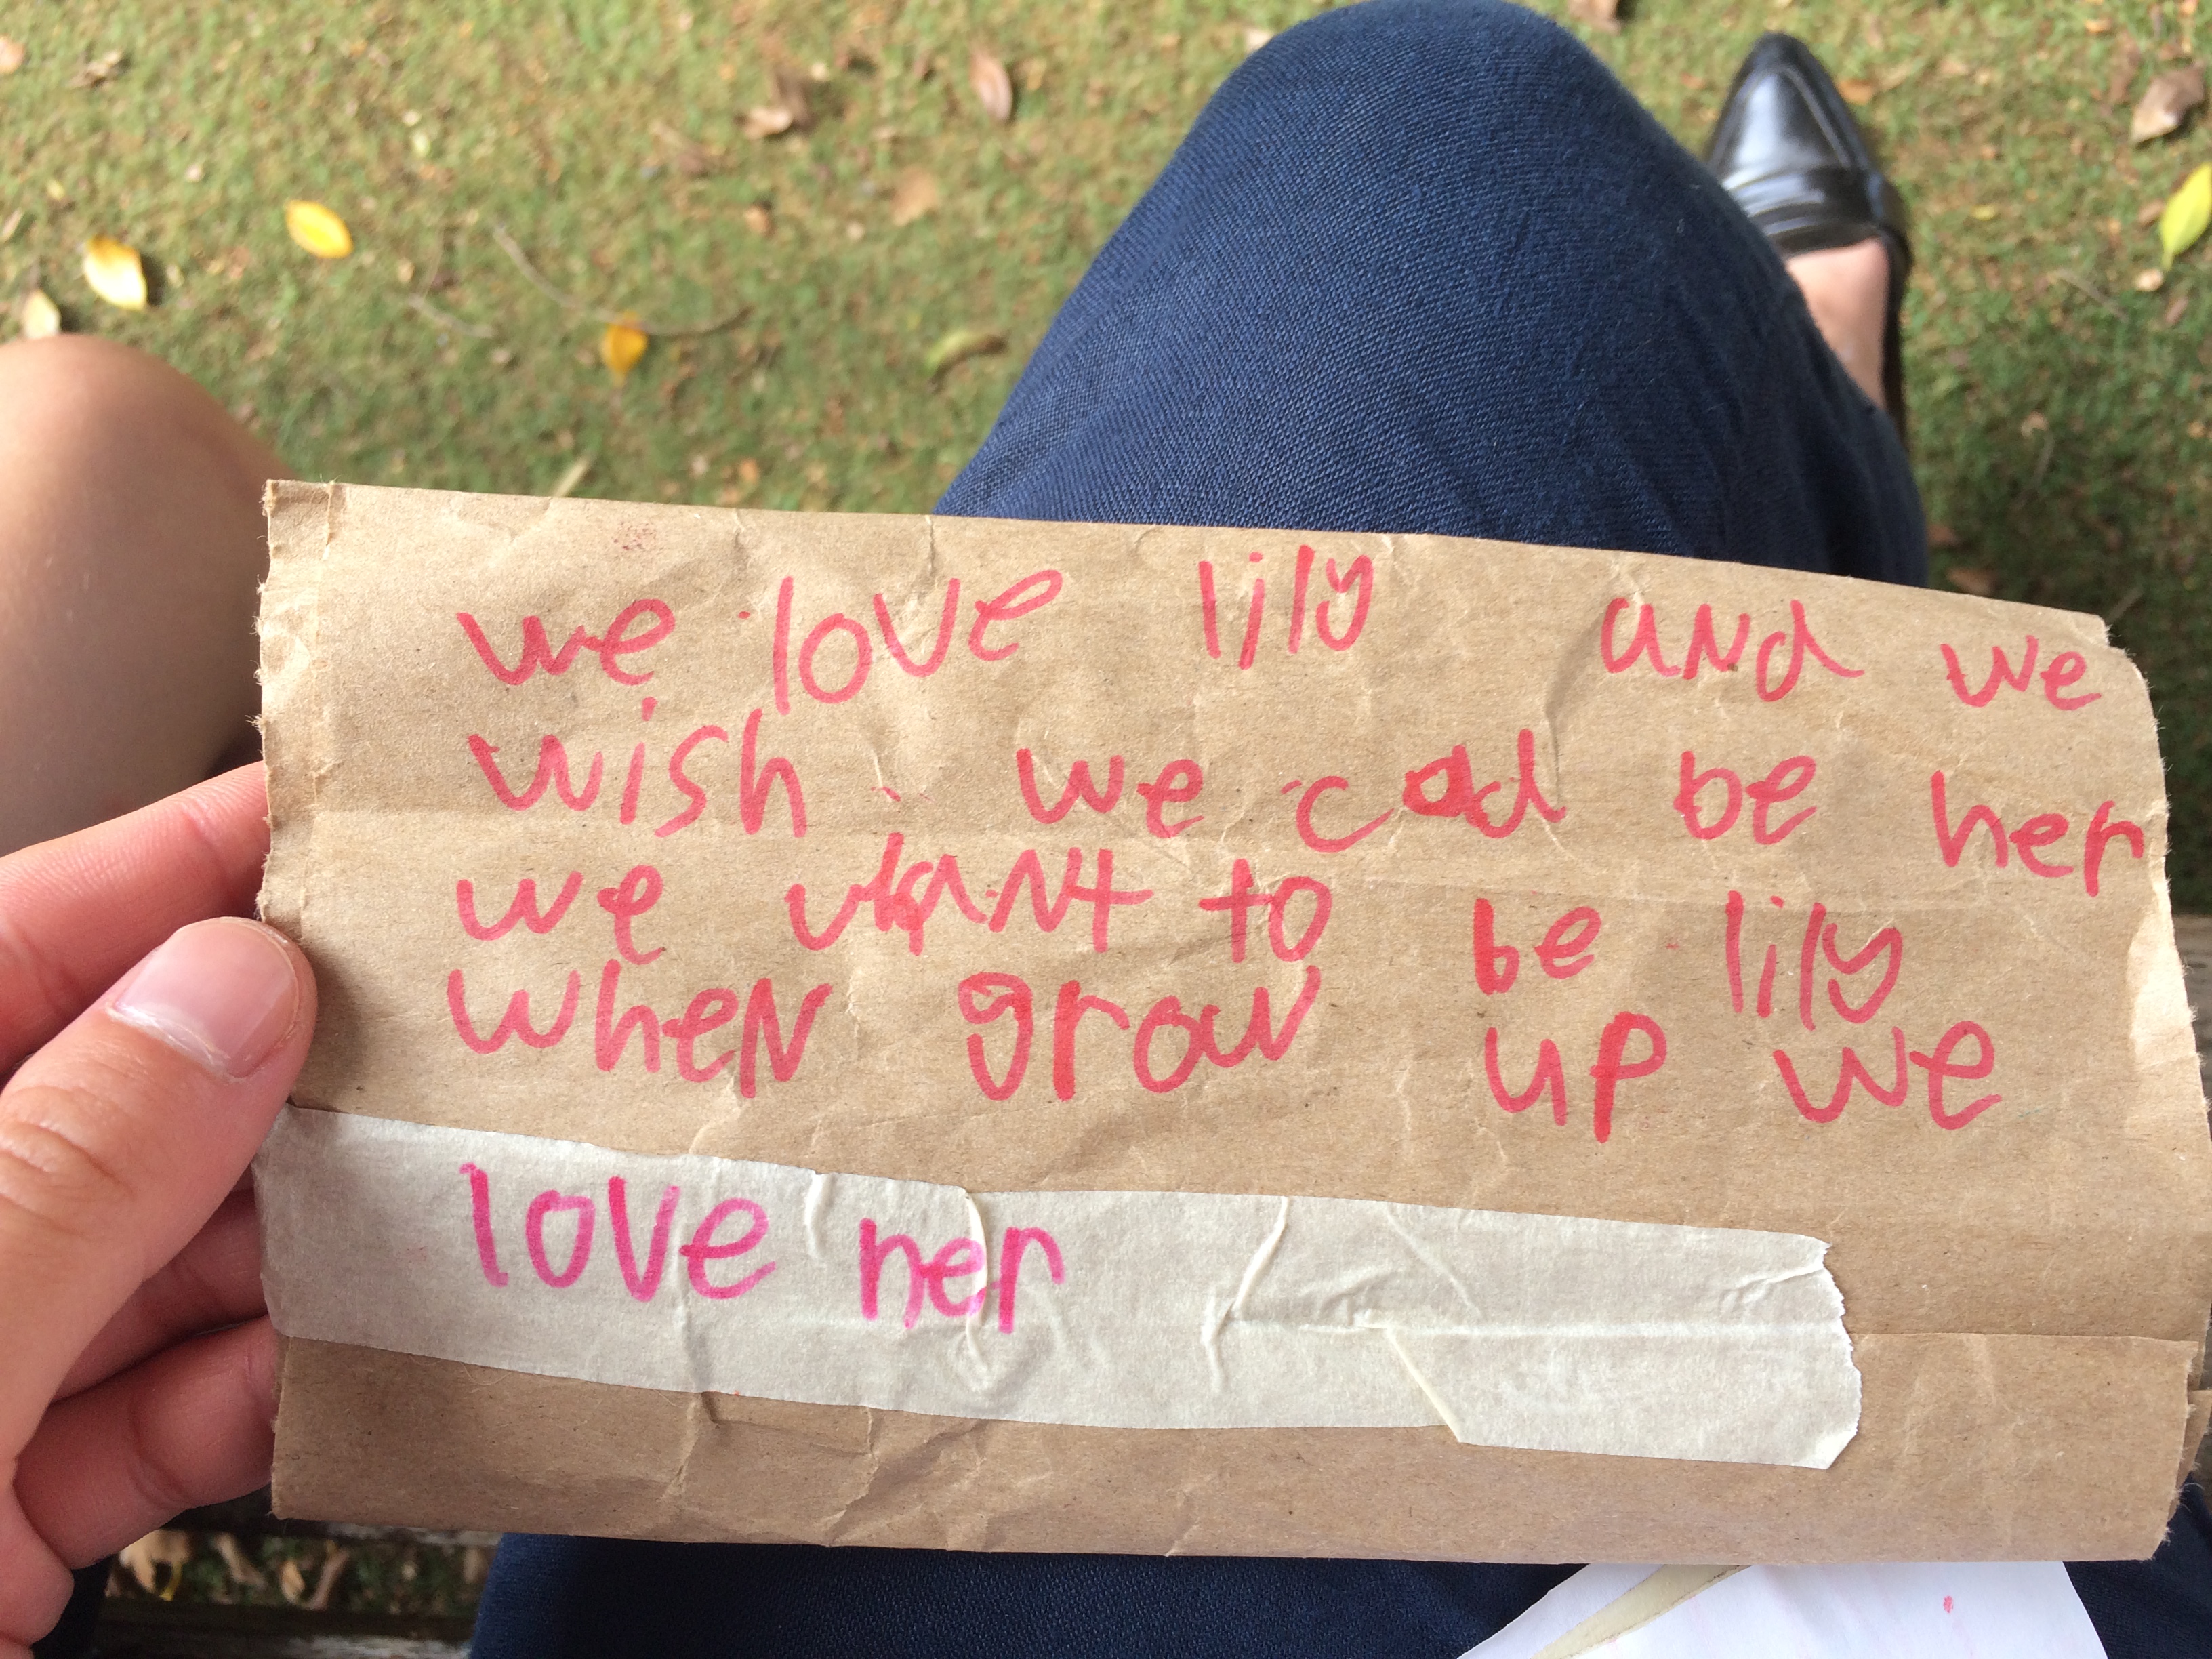 we love lily and we
wish we cod be her
we want to be lily
when grow up we
love her